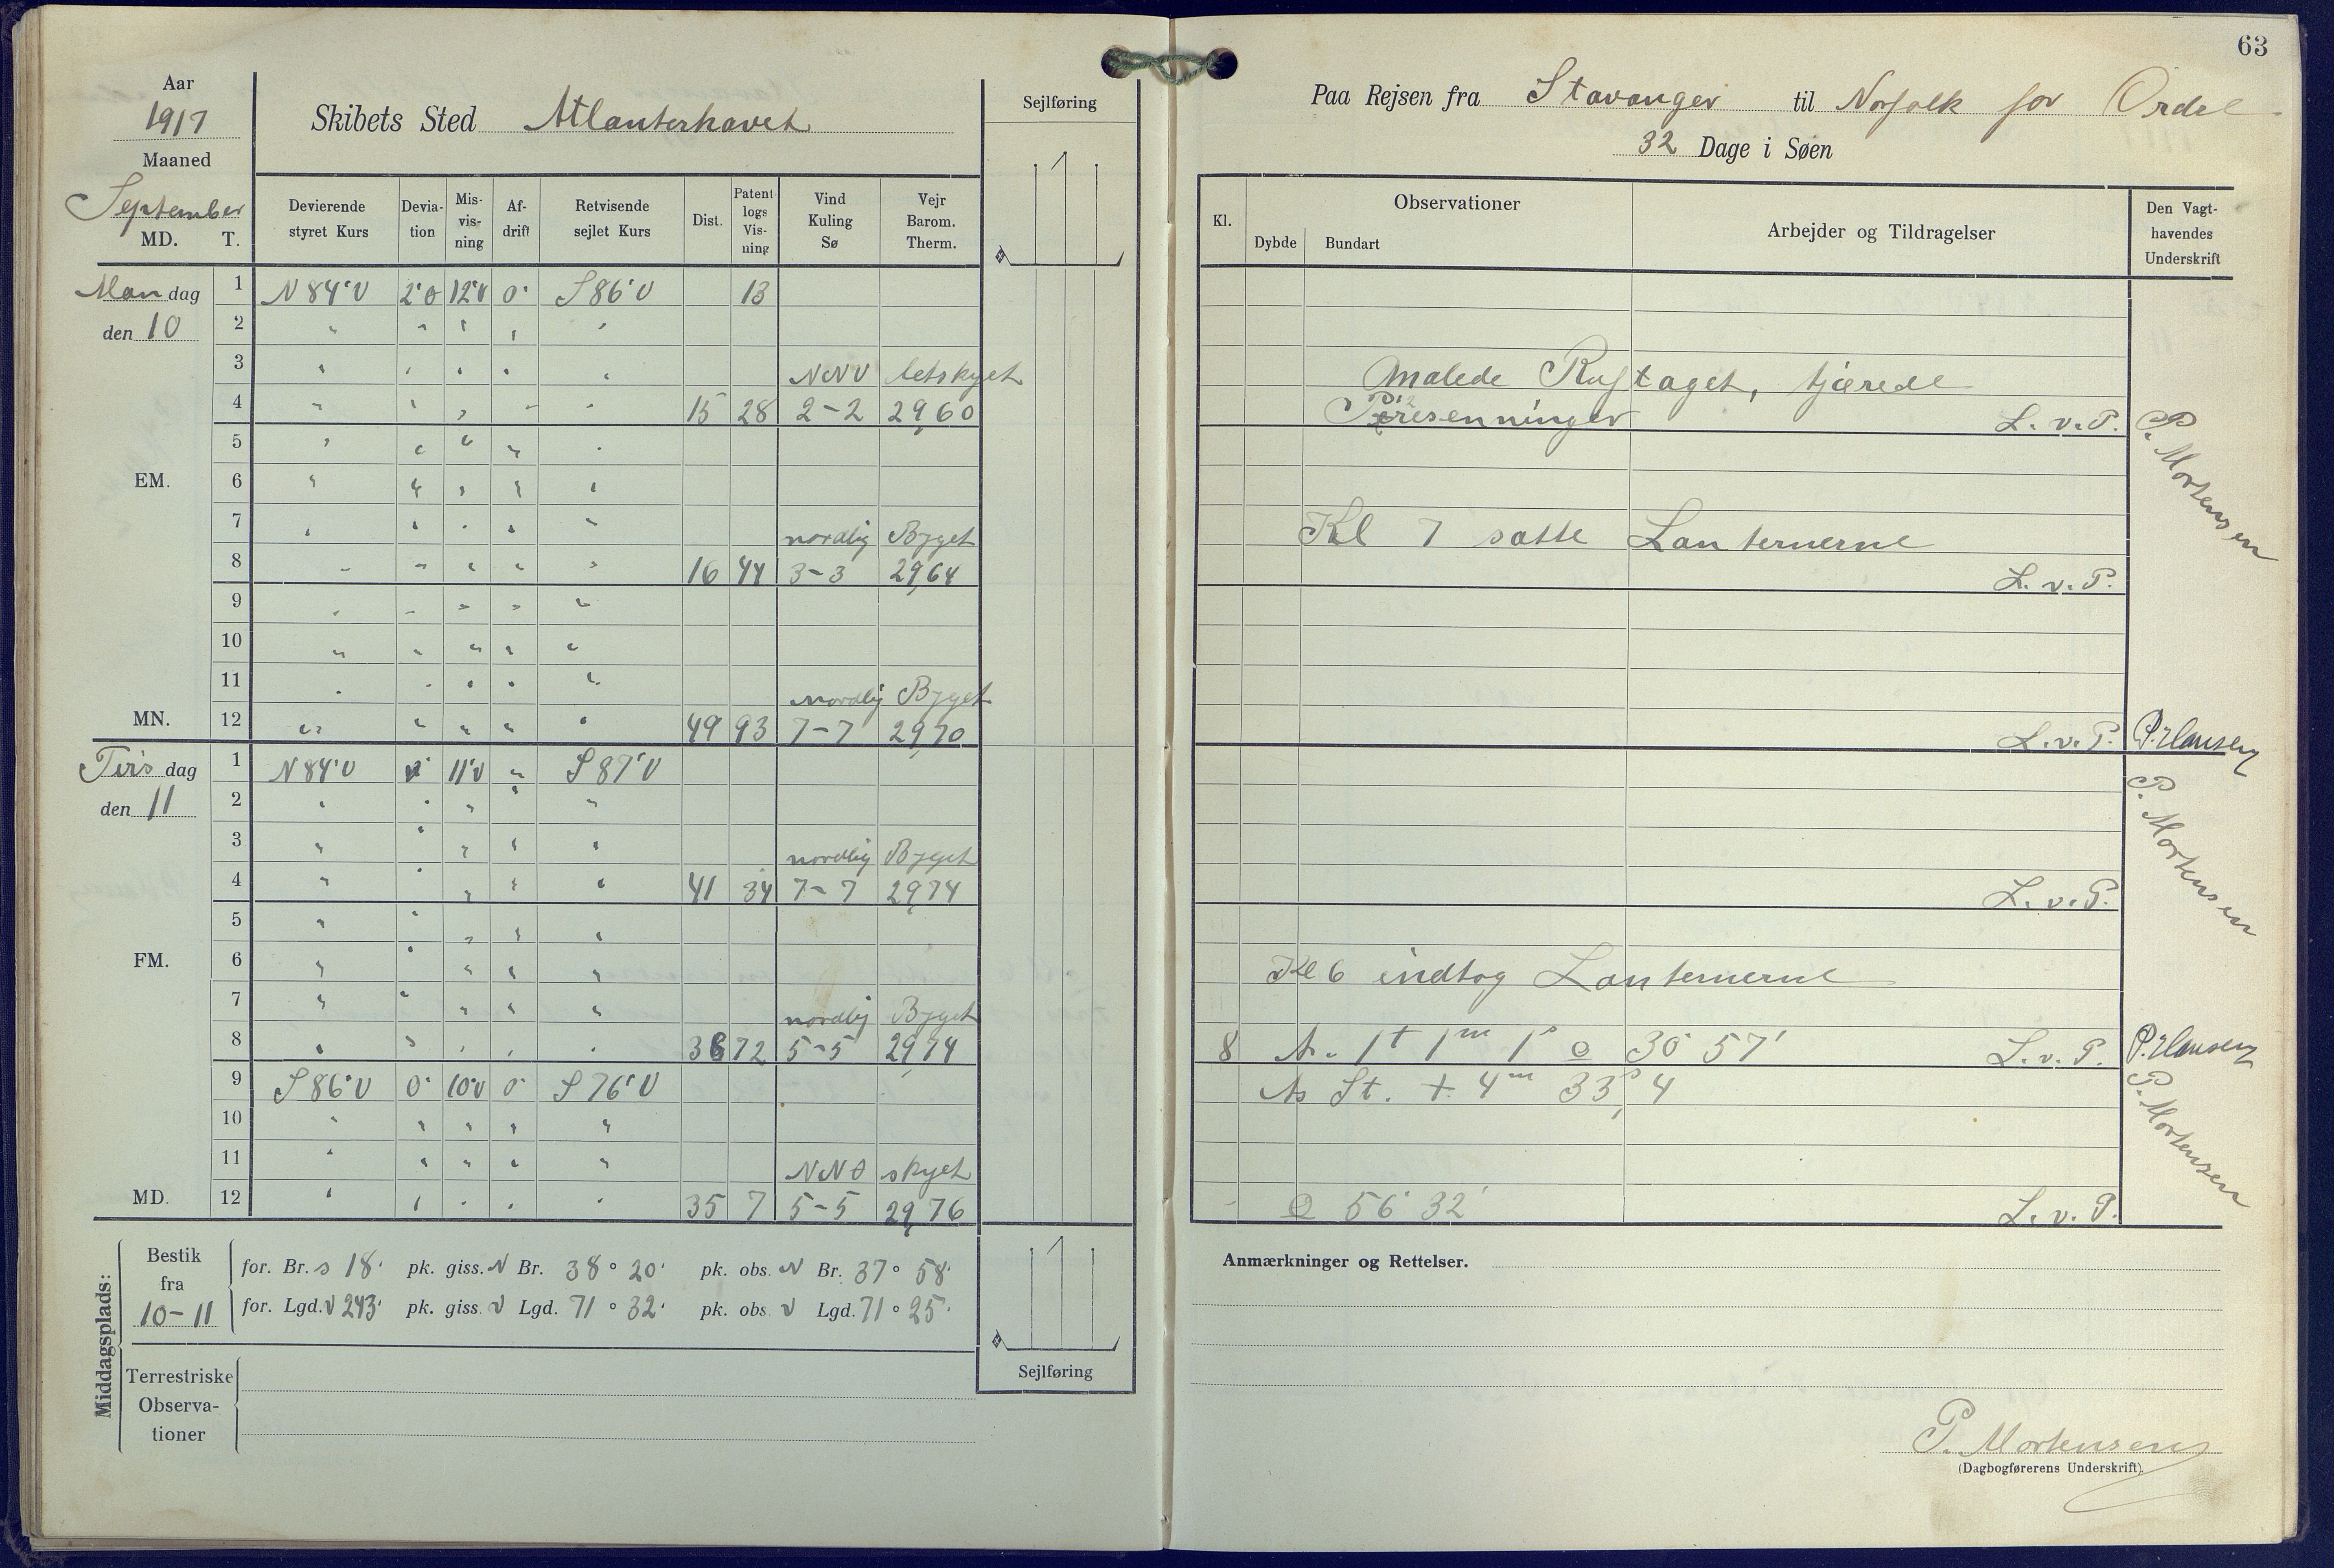 63
Aar
1917
Maaned
September
MD. T.
Skibets Sted Atlanterhavet
Sejlføring
Devierende styret Kurs
Devia-tion
Mis-vis-ning
Af-drift
Retvisende sejlet Kurs
Dist.
Patent logs Vis-ning
Vind Kuling Sø
Vejr Barom. Therm.
Mandag den 10
1 N 84° V 2° O 12° V 0° S 86° V 13
2 " " " " "
3 " " " " " NNV letskyet
4 " " " " " 15 28 2-2 29,60
5 " " " " "
EM. 6 " " " " "
7 " " " " " nordlig Byget
8 " " " " " 16 44 3-3 29,64
9 " " " " "
10 " " " " "
11 " " " " " nordlig Byget
MN. 12 " " " " " 49 93 7-7 29,70
Tirsdag den 11
1 N 84° V 11° V " S 87° V
2 " " " " "
3 " " " " " nordlig Byget
4 " " " " " 41 34 7-7 29,74
5 " " " " "
FM. 6 " " " " "
7 " " " " " nordlig Byget
8 " " " " " 38 72 5-5 29,74
9 S 86° V 0° 10° V 0° S 76° V
10 " " " " "
11 " " " " " NNO skyet
MD. 12 " " " " " 35 7 5-5 29,76
Middagsplads:
Bestik fra 10-11
for. Br. S 18' pk. giss. N Br. 38° 20' pk. obs. N Br. 37° 58'
for. Lgd. V 243' pk. giss. V Lgd. 71° 32' pk. obs. V Lgd. 71° 25'
Terrestriske Observa-tioner
Sejlføring
Paa Rejsen fra Stavanger til Norfolk for Ordre
32 Dage i Søen
Kl.
Observationer
Dybde Bundart
Arbejder og Tildragelser
Den Vagt-havendes Underskrift
Malede Ruftaget, tjærede
Presenninger L. v. P.
P. Mortensen
Kl 7 satte Lanternerne
L. v. P.
L. v. P. P. Hansen
L. v. P.
P. Mortensen
Kl 6 indtog Lanternerne
8 As. 1t 1m 1s ⊙ 30° 57' L. v. P. P. Hansen
As St. + 4m 33s,4
P. Mortensen
⊙ 56° 32' L. v. P.
Anmærkninger og Rettelser.
P. Mortensen
(Dagbogførerens Underskrift).